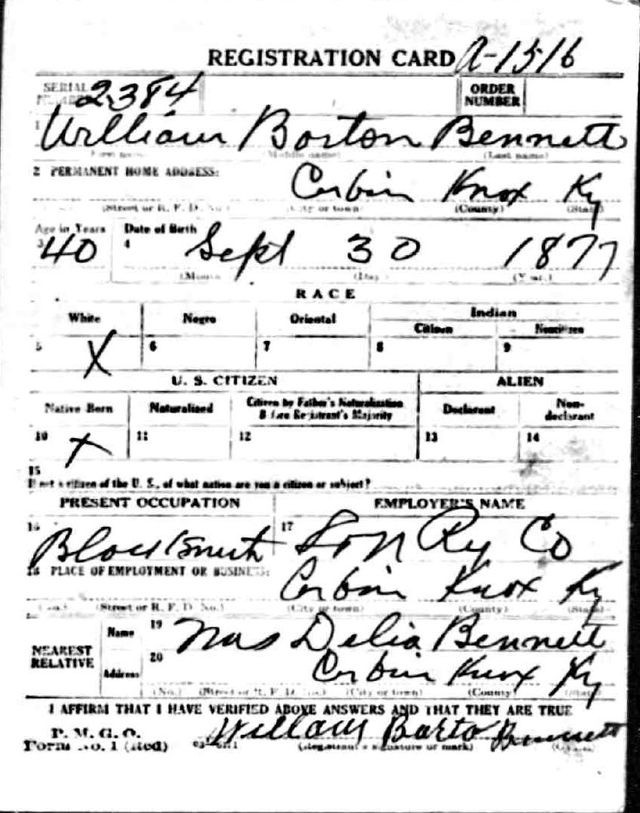 REGISTRATION CARD A-1516
SERIAL NUMBER 2384 ORDER NUMBER
1 William Borton Bennett
(First name) (Middle name) (Last name)
2 PERMANENT HOME ADDRESS:
Corbin Knox Ky
(Street or R. F. D. No.) (City or town) (County) (State)
Age in Years Date of Birth
3 40 4 Sept 30 1877
(Month) (Day) (Year)
RACE
White Negro Oriental Indian
Citizen Noncitizen
5 X 6 7 8 9
U. S. CITIZEN ALIEN
Native Born Naturalized Citizen by Father's Naturalization Before Registrant's Majority Declarant Non-declarant
10 X 11 12 13 14
15
If not a citizen of the U. S., of what nation are you a citizen or subject?
PRESENT OCCUPATION EMPLOYER'S NAME
16 Blacksmith 17 Ry Co
18 PLACE OF EMPLOYMENT OR BUSINESS:
Corbin Knox Ky
(No.) (Street or R. F. D. No.) (City or town) (County) (State)
NEAREST RELATIVE Name 19 Mrs Delia Bennett
Address 20 Corbin Knox Ky
(No.) (Street or R. F. D. No.) (City or town) (County) (State)
I AFFIRM THAT I HAVE VERIFIED ABOVE ANSWERS AND THAT THEY ARE TRUE
P. M. G. O.
Form No. 1 (Red) William Barto Bennett
(Registrant's signature or mark)